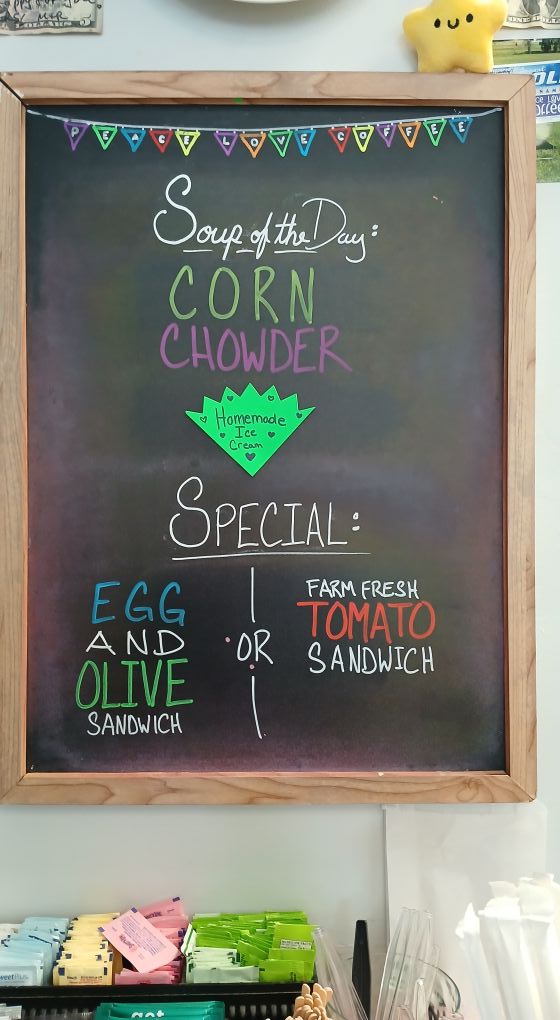 PEACE LOVE COFFEE
Soup of the Day:
CORN
CHOWDER
Homemade
Ice
Cream
SPECIAL:
EGG
AND
OLIVE
SANDWICH
OR
FARM FRESH
TOMATO
SANDWICH